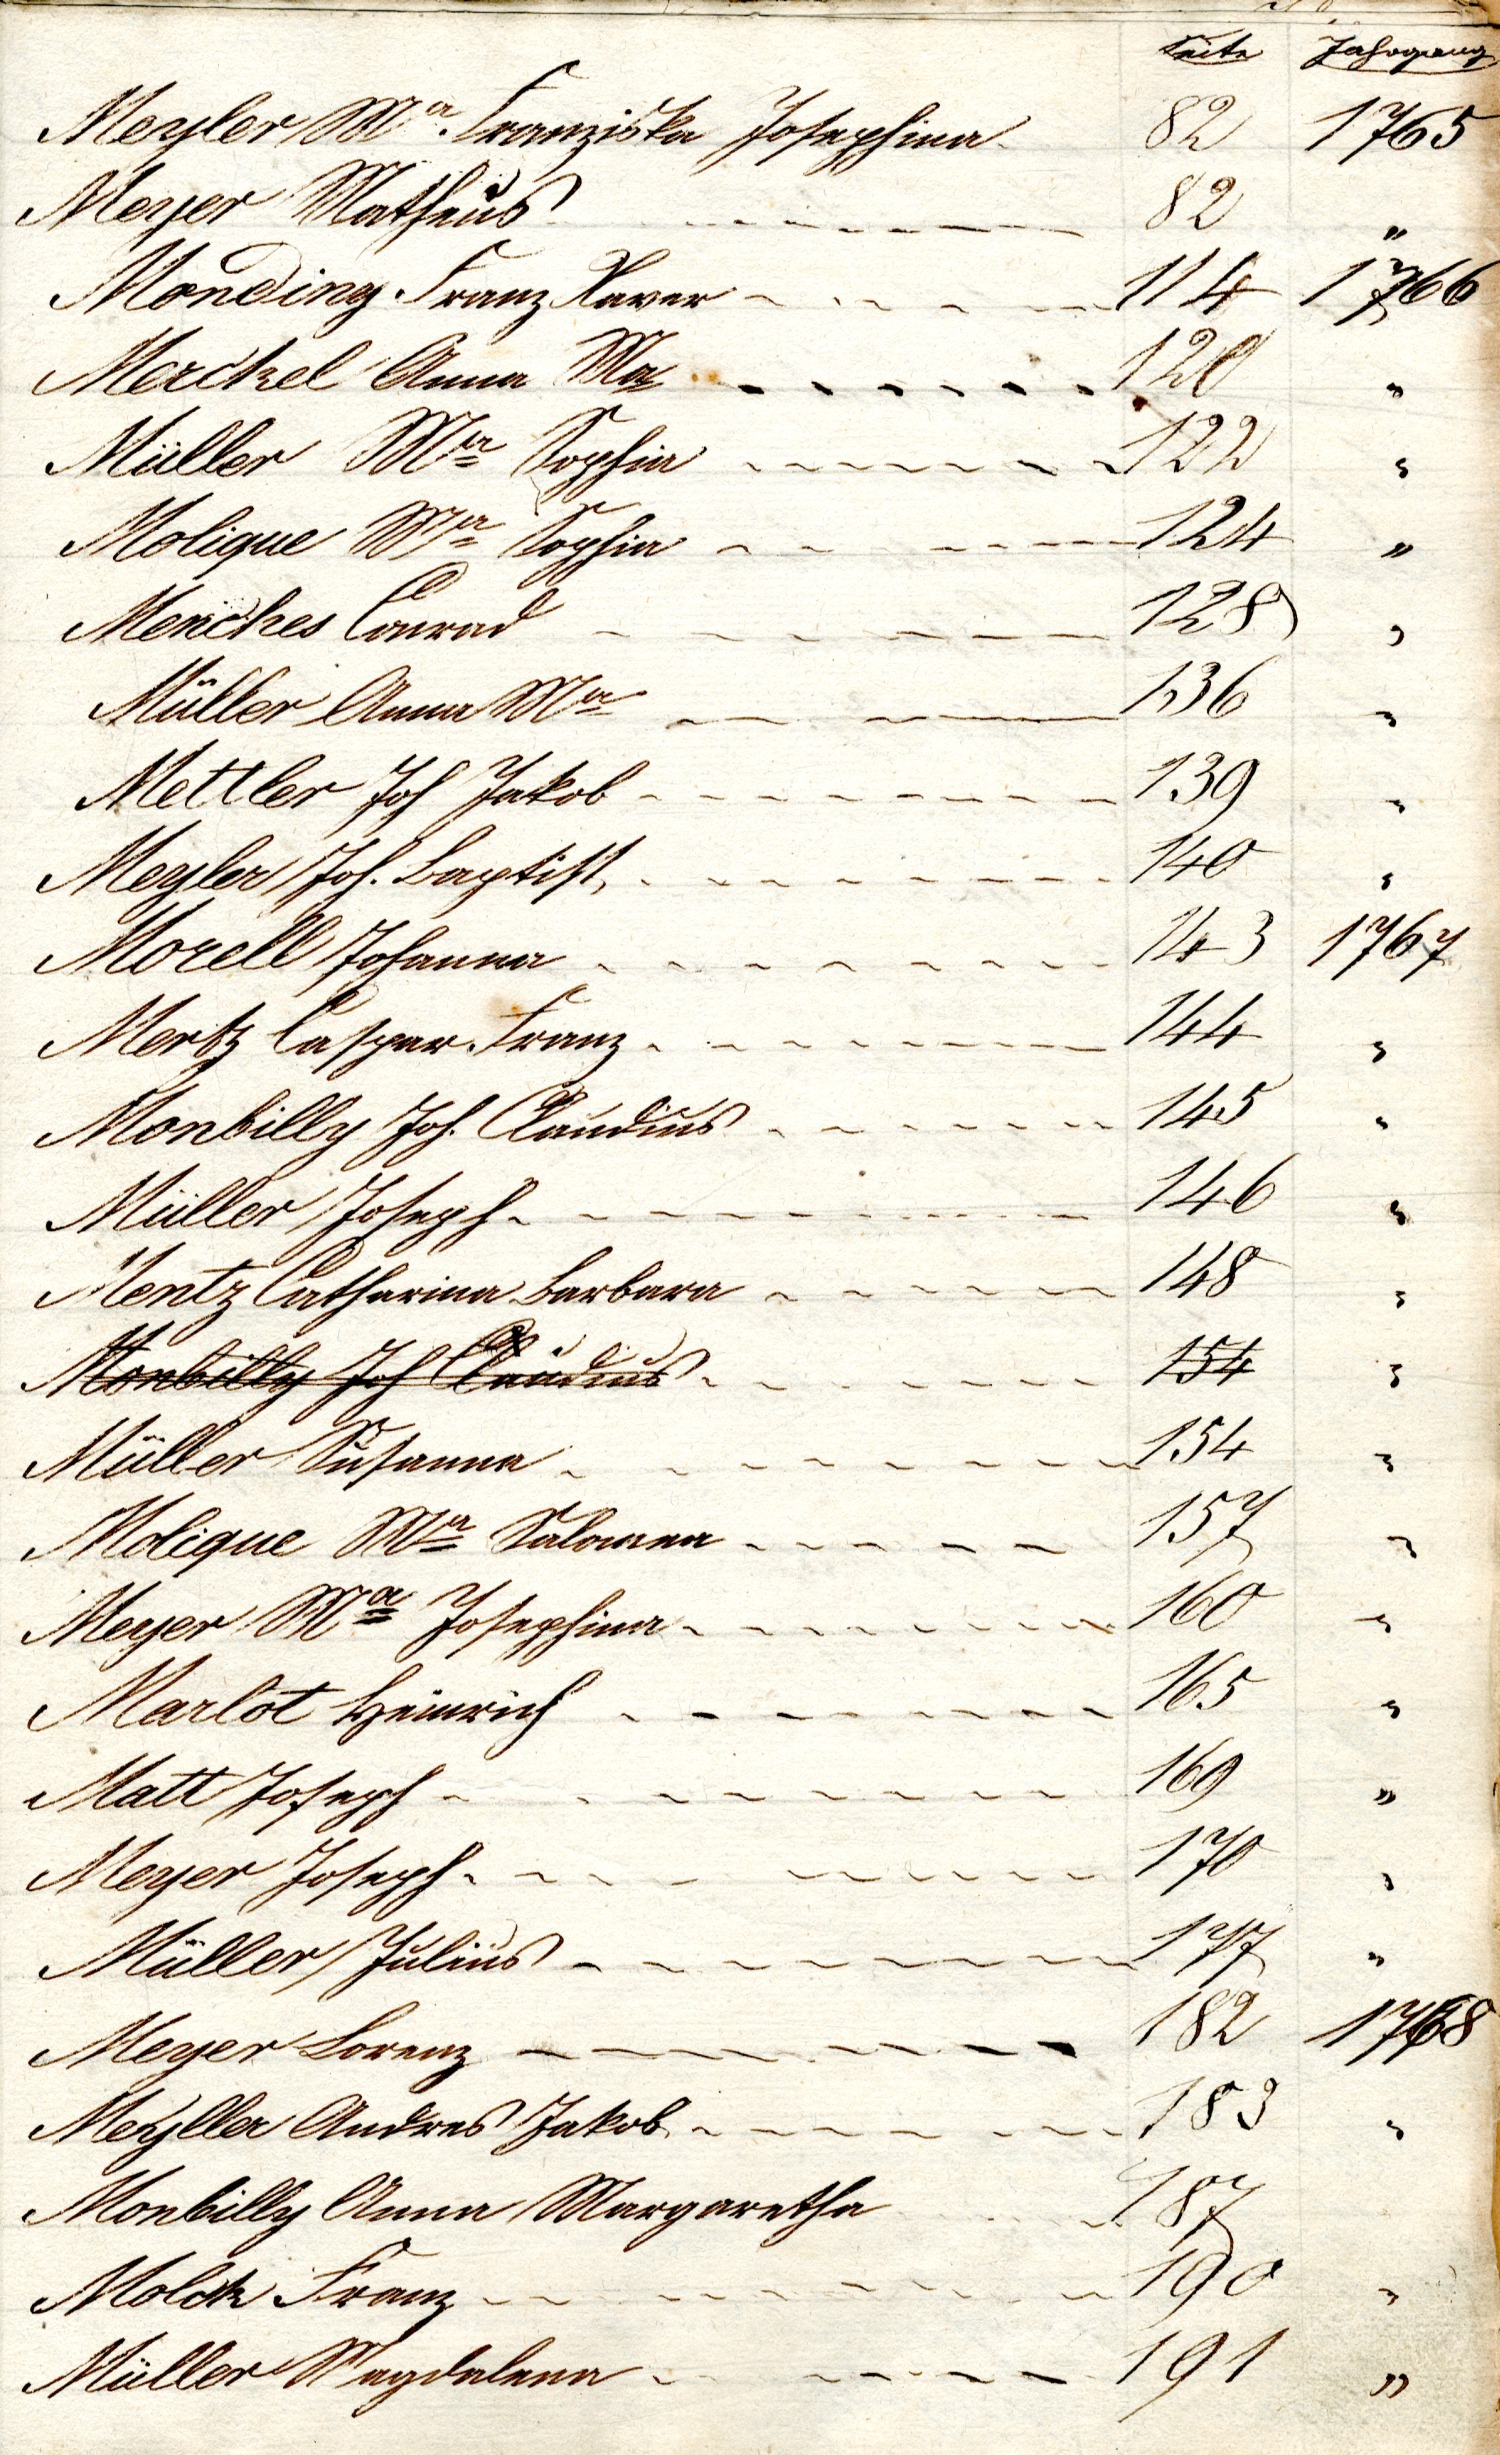 Seite Jahrgang
Meyler Ma. Franziska Josephina 82 1765
Meyer Mathäus 82 "
Monding Franz Xaver 114 1766
Merckel Anna Ma 120 "
Müller Ma Sophia 122 "
Molique Ma Sophia 124 "
Menches Conrad 128 "
Müller Anna Ma 136 "
Mettler Joh Jakob 139 "
Meyler Joh. Baptist 140 "
Morell Johanna 143 1767
Mertz Caspar Franz 144 "
Monbilly Joh. Claudius 145 "
Müller Joseph 146 "
Mentz Catharina Barbara 148 "
Monbilly Joh Claudius 154 "
Müller Susanna 154 "
Molique Ma Salomea 157 "
Meyer Ma Josephina 160 "
Marlot Heinrich 165 "
Matt Joseph 169 "
Meyer Joseph 170 "
Müller Julius 177 "
Meyer Lorenz 182 1768
Meyller Andres Jakob 183 "
Monbilly Anna Margaretha 187
Molck Franz 190 "
Müller Magdalena 191 "